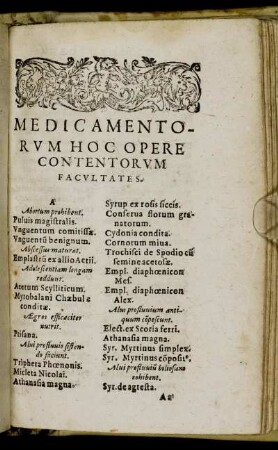 MEDICAMENTO-
RVM HOC OPERE
CONTENTORVM
FACVLTATES.
A
Abortum prohibent.
Puluis magistralis.
Vnguentum comitissæ.
Vnguentū benignum.
Abscessus maturat.
Emplastrū ex allio Actii.
Adolescentiam longam
reddunt.
Acetum Scylliticum.
Myrobalani Chæbulæ
conditæ.
Ægros efficaciter
nutrit.
Ptisana.
Alui profluuiū sisten-
do finiunt.
Triphera Phœnonis.
Micleta Nicolai.
Athanasia magna.
Syrup ex rosis siccis.
Conserua florum gra-
natorum.
Cydonia condita.
Cornorum miua.
Trochisci de Spodio cū
semine acetosæ.
Empl. diaphœnicon
Mes.
Empl. diaphœnicon
Alex.
Alui profluuium anti-
quum cōpescunt.
Elect. ex Scoria ferri.
Athanasia magna.
Syr. Myrtinus simplex.
Syr. Myrtinus cōposit⁹.
Alui profluuiū
cohibent.
Syr. de agresta.